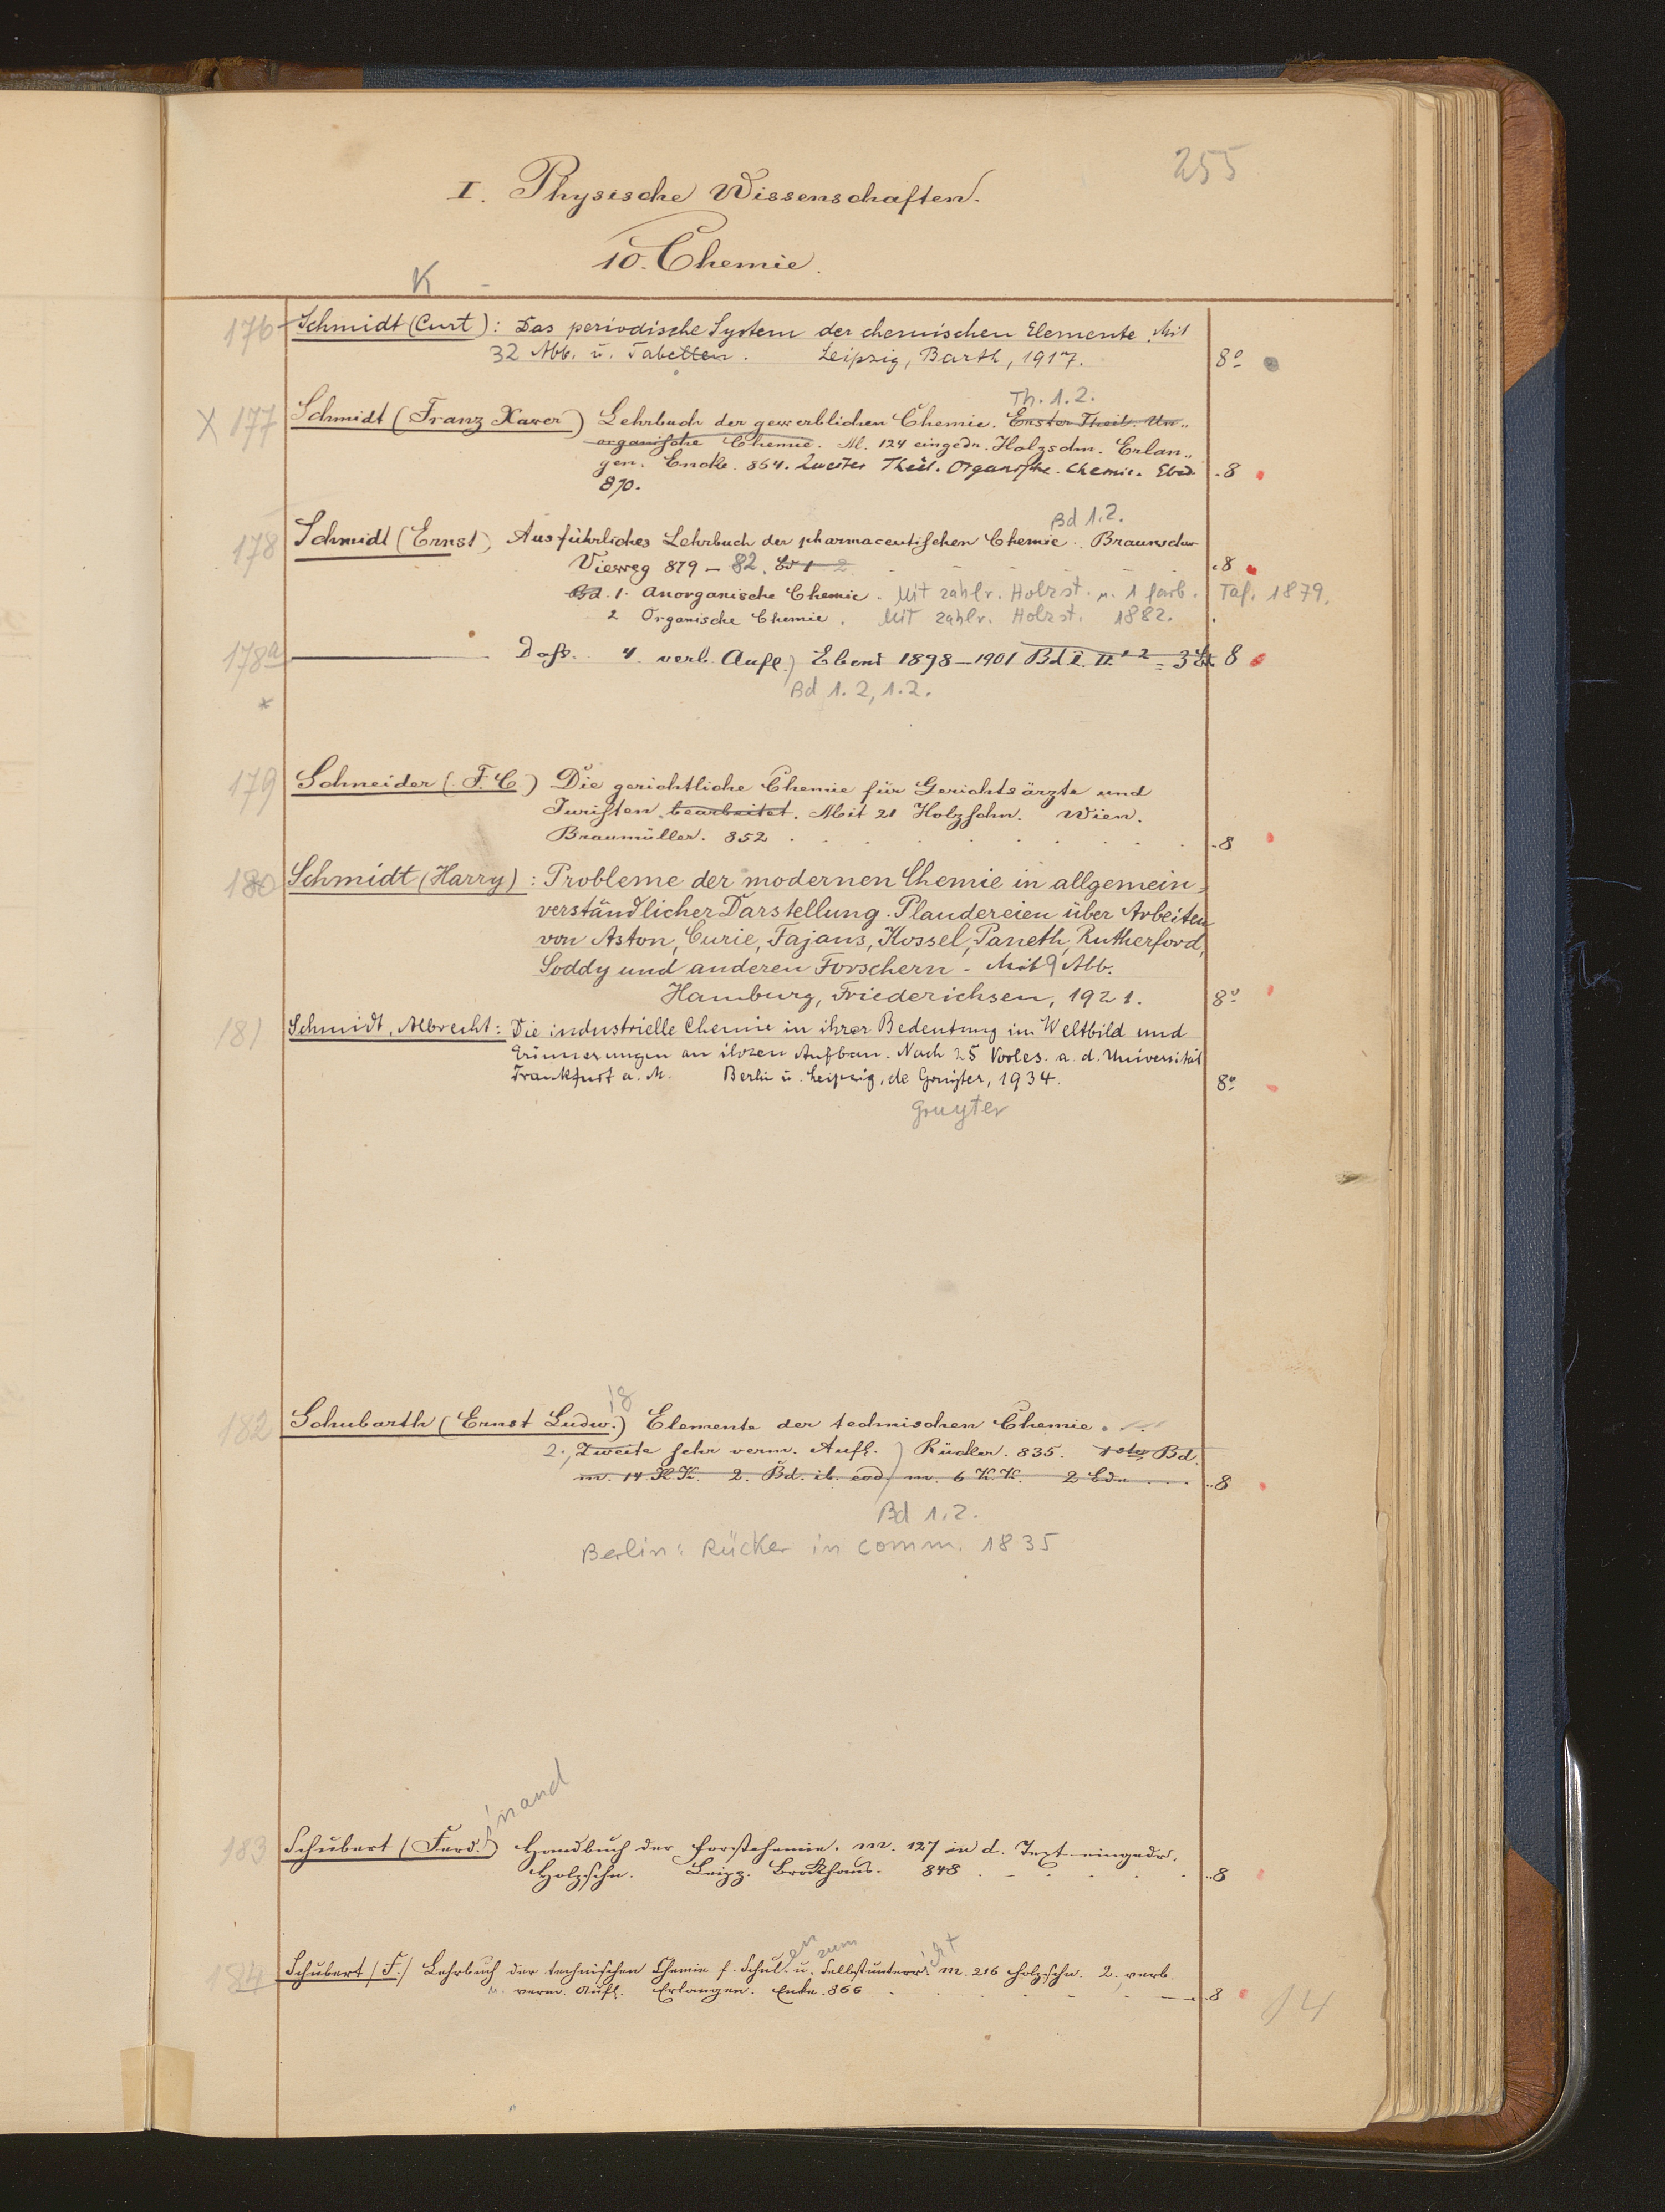 255
I. Physische Wissenschaften.
10. Chemie.
K
176 Schmidt (Curt): Das periodische System der chemischen Elemente. Mit
32 Abb. u. Tabellen. Leipzig, Barth, 1917. 8º
Th. 1.2.
X 177 Schmidt (Franz Xaver) Lehrbuch der gewerblichen Chemie. Erster Theil. Un„
organische Chemie. M. 124 eingedr. Holzschn. Erlan„
gen. Encke. 864. Zweiter Theil. Organische Chemie. Ebd. 8
870.
Bd 1.2.
178 Schmidt (Ernst) Ausführliches Lehrbuch der pharmaceutischen Chemie. Braunschw
Vieweg 879 – 82. Bd 1 2 8
Bd. 1. Anorganische Chemie. Mit zahlr. Holzst. u. 1 farb. Taf. 1879.
2 Organische Chemie. Mit zahlr. Holzst. 1882.
178a Dass. 4. verb. Aufl.) Ebend 1898–1901 Bd I. II. 1 2 = 3 Bd 8
* Bd 1. 2, 1.2.
179 Schneider (F. C) Die gerichtliche Chemie für Gerichtsärzte und
Juristen bearbeitet. Mit 21 Holzschn. Wien.
Braumüller. 852 8
180 Schmidt (Harry): Probleme der modernen Chemie in allgemein-
verständlicher Darstellung. Plaudereien über Arbeiten
von Aston, Curie, Fajans, Kossel, Paneth, Rutherford,
Soddy und anderen Forschern. Mit 9 Abb.
Hamburg, Friederichsen, 1921. 8º
181 Schmidt, Albrecht: Die industrielle Chemie in ihrer Bedeutung im Weltbild und
Erinnerungen an ihren Aufbau. Nach 25 Vorles. a. d. Universität
Frankfurt a. M. Berlin u. Leipzig, de Gruyter, 1934. 8º
Gruyter
182 Schubarth (Ernst Ludw.) Elemente der technischen Chemie.
ig
2., Zweite sehr verm. Aufl.) Rücker. 835. 1ster Bd.
m. 14 K.K. 2. Bd. ib. eod. m. 6 K.K. 2 Bde 8
Bd 1.2.
Berlin: Rücker in comm. 1835
inand
183 Schubert (Ferd.) Handbuch der Forstchemie. m. 127 in d. Text eingedr.
Holzschn. Leipz. Brockhaus. 848 8
en zum icht
184 Schubert (F.) Lehrbuch der technischen Chemie f. Schul. u. Selbstunterr. m. 216 Holzschn. 2. verb.
u. verm. Aufl. Erlangen. Enke. 866 8
14